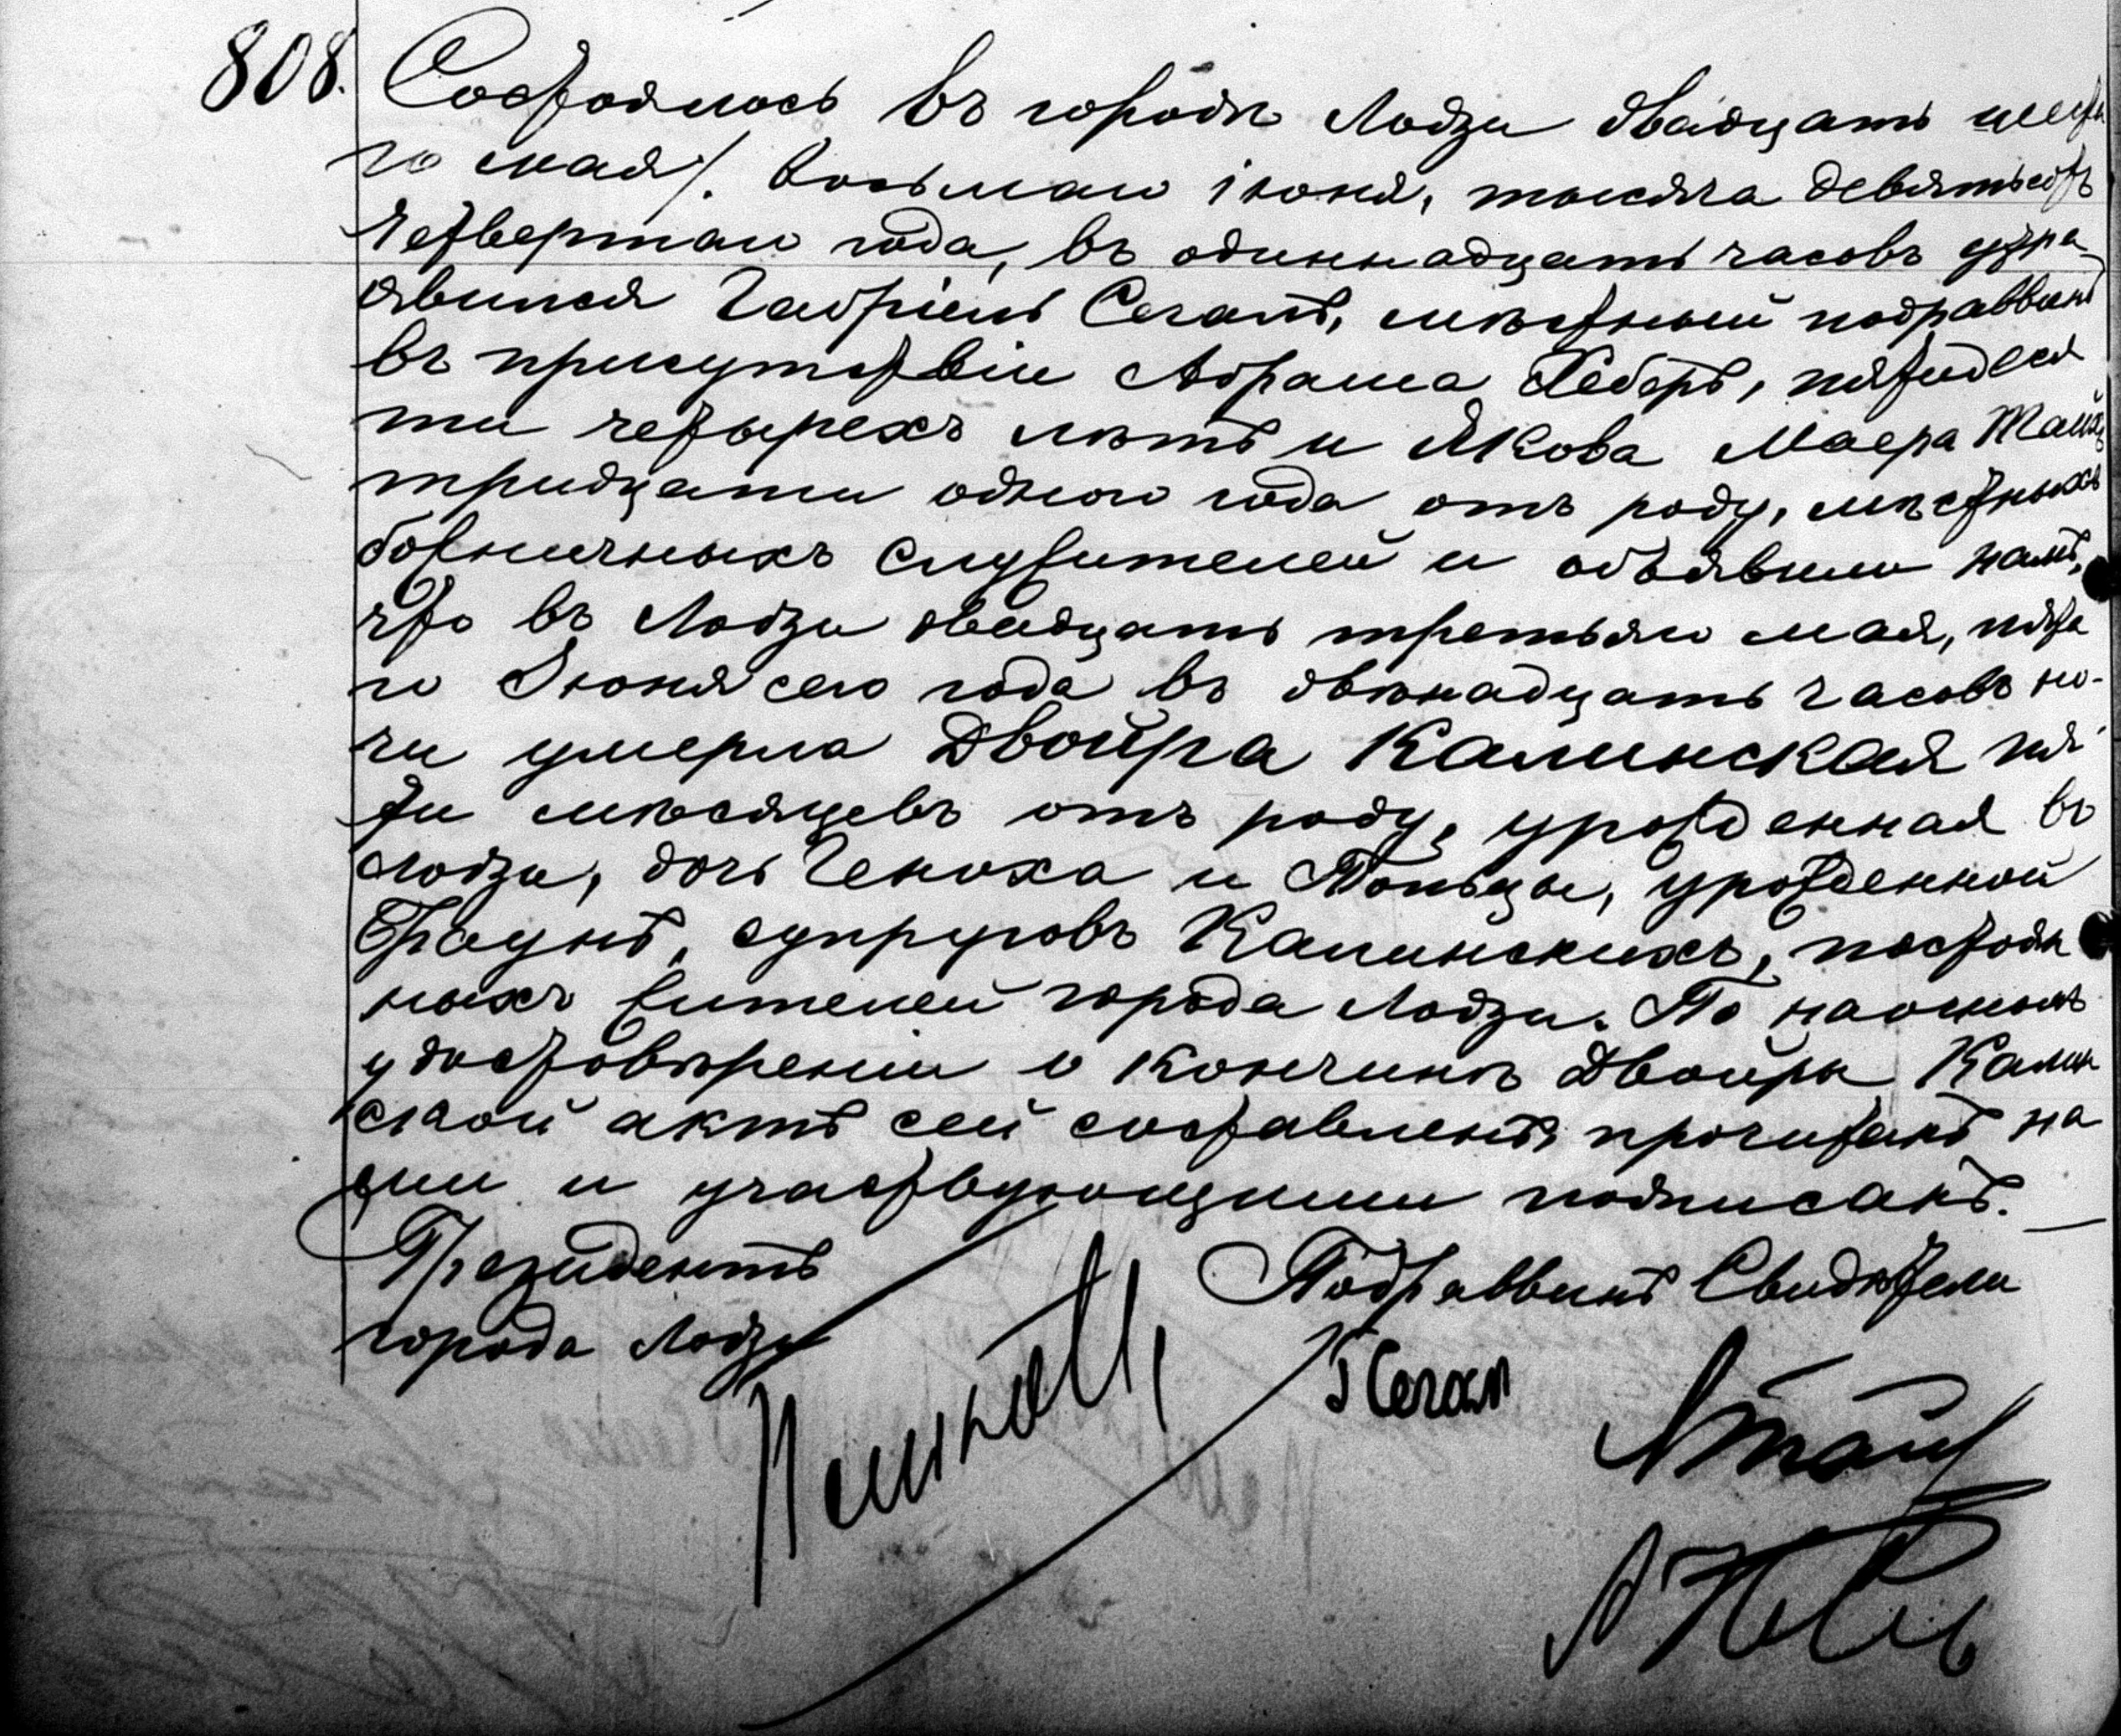 808. Состоялось въ городѣ Лодзи двадцать шеста
го мая/. восьмаго іюня, тысяча девятьсотъ
четвертаго года, въ одиннадцать часовъ утра
явился Габріель Сегалъ, мѣстный подраввинъ
въ присутствіи Абрама Хеберъ, пятидеся
ти четырехъ лѣтъ и Якова Маера Тайхъ
тридцати одного года отъ роду, мѣстныхъ
божничныхъ служителей и объявили намъ,
что въ Лодзи двадцать третьяго мая, пята
го Іюня сего года въ двѣнадцать часовъ но-
чи умерла Двойра Калинская пя
ти мѣсяцевъ отъ роду, урожденная въ
Лодзи, дочь Геноха и урожденной
Браунъ, супруговъ Калинскихъ, постоян
ныхъ жителей города Лодзи. По наочномъ
удостовѣреніи о кончинѣ Двойры Калин
ской актъ сей составленъ, прочитанъ на
ми и участвующими подписанъ.
Президентъ Подраввинъ Свидѣтели
города Лодзи
Г Сегал